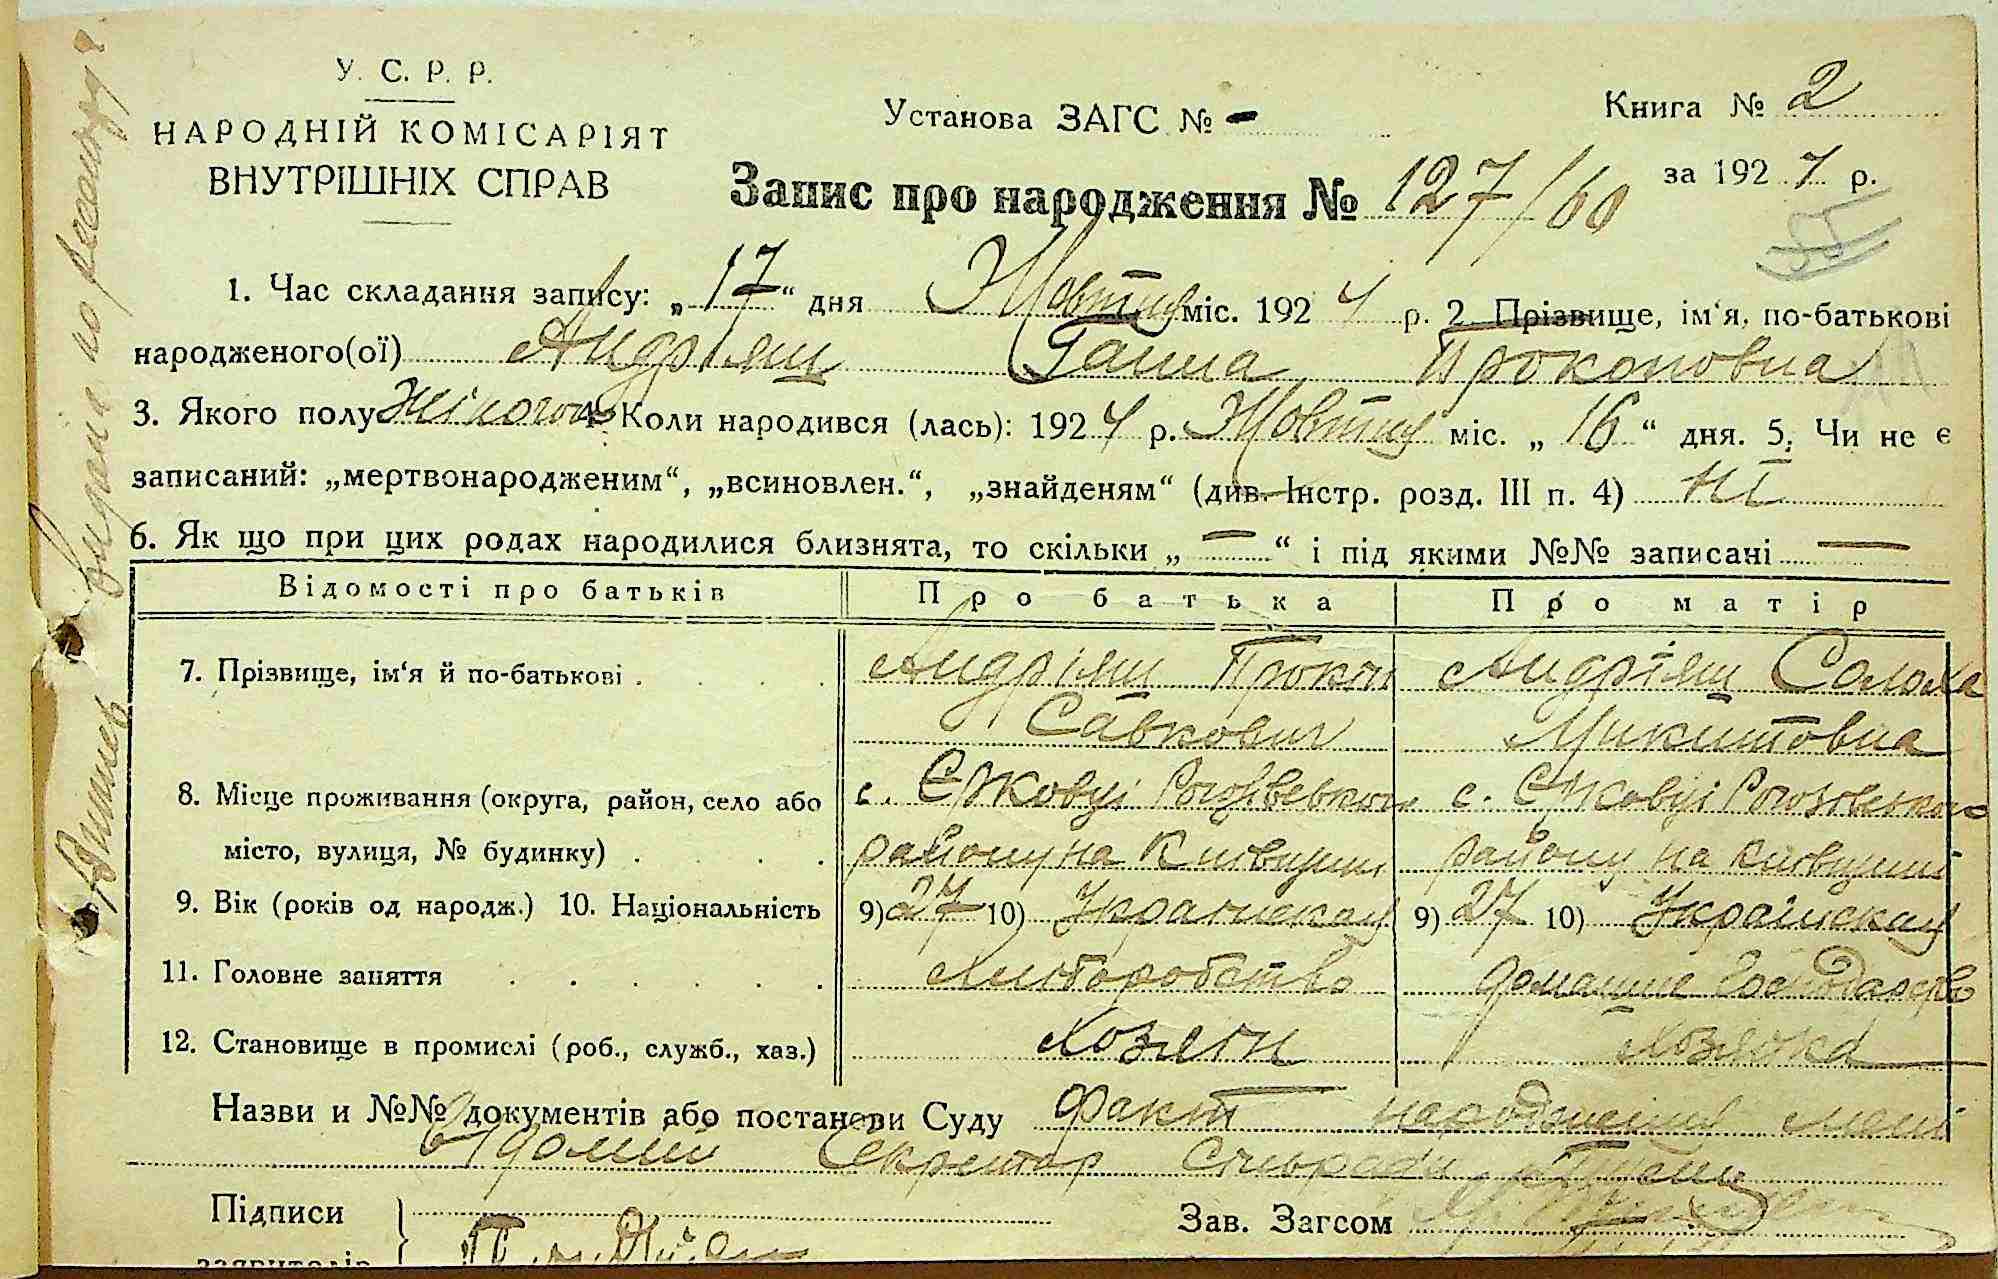 У. С. Р. Р.
НАРОДНІЙ КОМІСАРІЯТ
ВНУТРІШНІХ СПРАВ
Установа ЗАГС № -
Книга № 2
за 1924 р.
Запис про народження № 127/60
1. Час складання запису: „17“ дня Жовтня міс. 1924 р. 2. Прізвище, ім'я, по-батькові
народженого(ої) Андріяш Ганна Прокоповна
3. Якого полу жіночого 4. Коли народився (лась): 1924 р. Жовтня міс. „16“ дня. 5. Чи не є
записаний: „мертвонародженим“, „всиновлен.“, „знайденям“ (див. Інстр. розд. III п. 4) ні
6. Як що при цих родах народилися близнята, то скільки „—“ і під якими №№ записані —
Відомості про батьків Про батька Про матір
7. Прізвище, ім'я й по-батькові . . . . Андріяш Прокіп Андріяш Солоха
Савкович Микитовна
8. Місце проживання (округа, район, село або с. Єрковці Рогозівського с. Єрковці Рогозовського
місто, вулиця, № будинку) . . . . району на Київщині району на Київщині
9. Вік (років од народж.) 10. Національність 9) 27 10) Українська 9) 27 10) Українська
11. Головне заняття . . . . . . Хліборобство домашнє господарство
12. Становище в промислі (роб., служб., хаз.) Хозяїн Хозяйка
Назви и №№ документів або постанови Суду Факт народження мені
відомий Секретар Сільради
Підписи
заявителів
Зав. Загсом